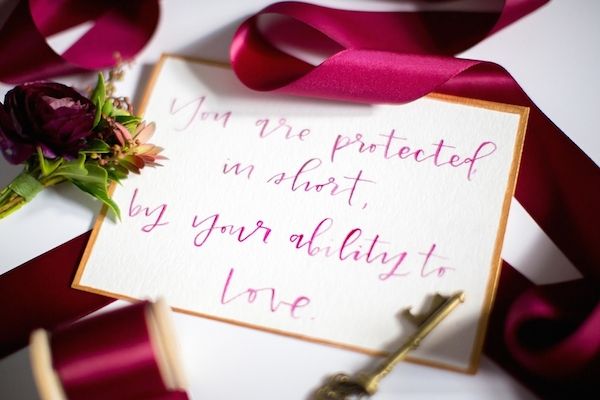 You are protected
in short,
by your ability to
love.